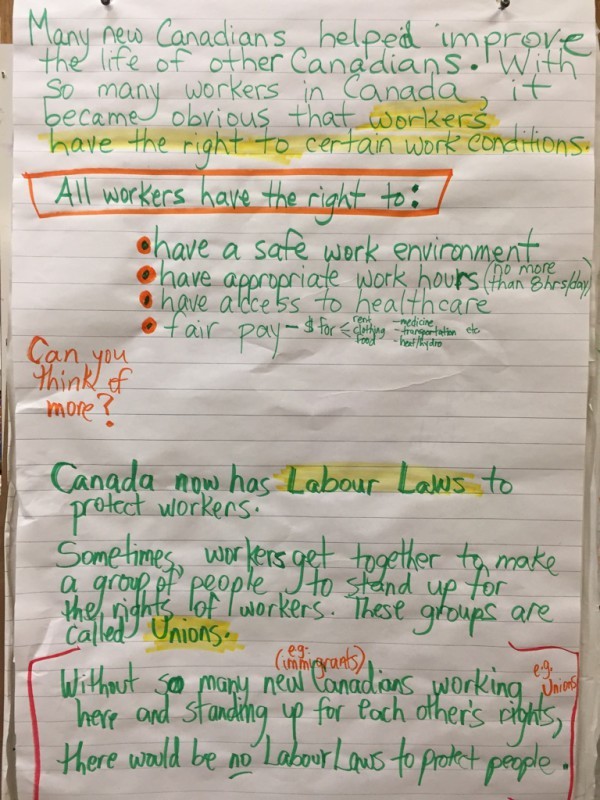 Many new Canadians helped improve
the life of other Canadians. With
so many workers in Canada, it
became obvious that workers
have the right to certain work conditions.
All workers have the right to:
have a safe work environment
have appropriate work hours (no more than 8hrs/day)
have access to healthcare
fair pay - $ for < rent clothing food - medicine - transportation etc - heat/hydro
Can you
think of
more?
Canada now has Labour Laws to
protect workers.
Sometimes, workers get together to make
a group of people to stand up for
the rights of workers. These groups are
called Unions.
(e.g. immigrants)
Without so many new Canadians working
e.g. Unions
here and standing up for each other's rights,
there would be no Labour Laws to protect people.